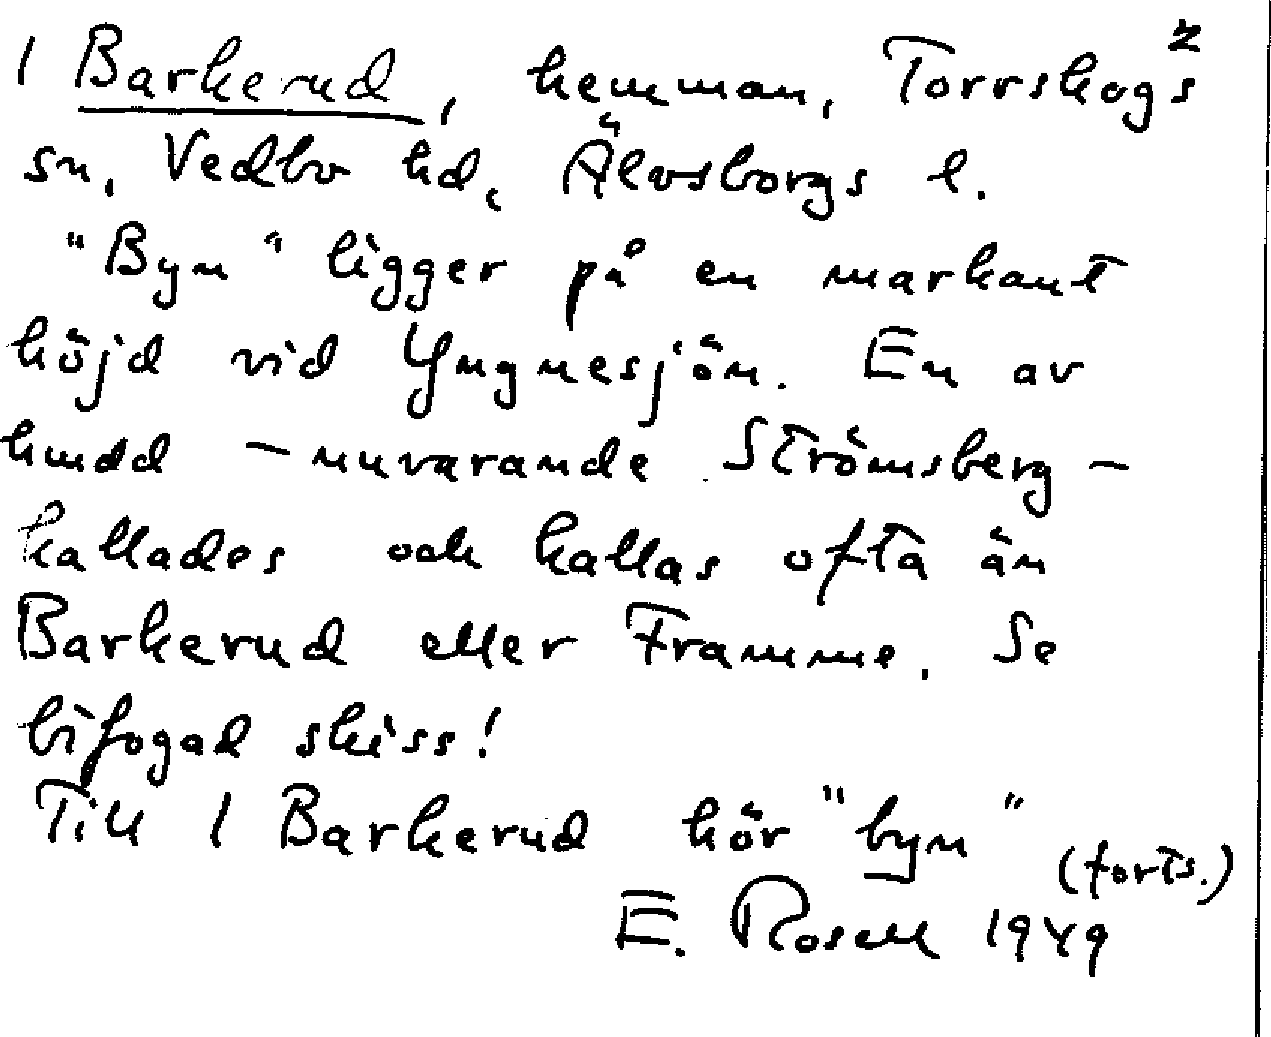 2
1 Barkerud, hemman, Torrskogs
sn, Vedbo hd, Älvsborgs l.
"Byn" ligger på en markant
höjd vid Yngnesjön. En av
hmdd - nuvarande Strömsberg -
kallades och kallas ofta än
Barkerud eller Framme. Se
bifogad skiss!
Till 1 Barkerud hör "byn"
(forts.)
E. Rosell 1949